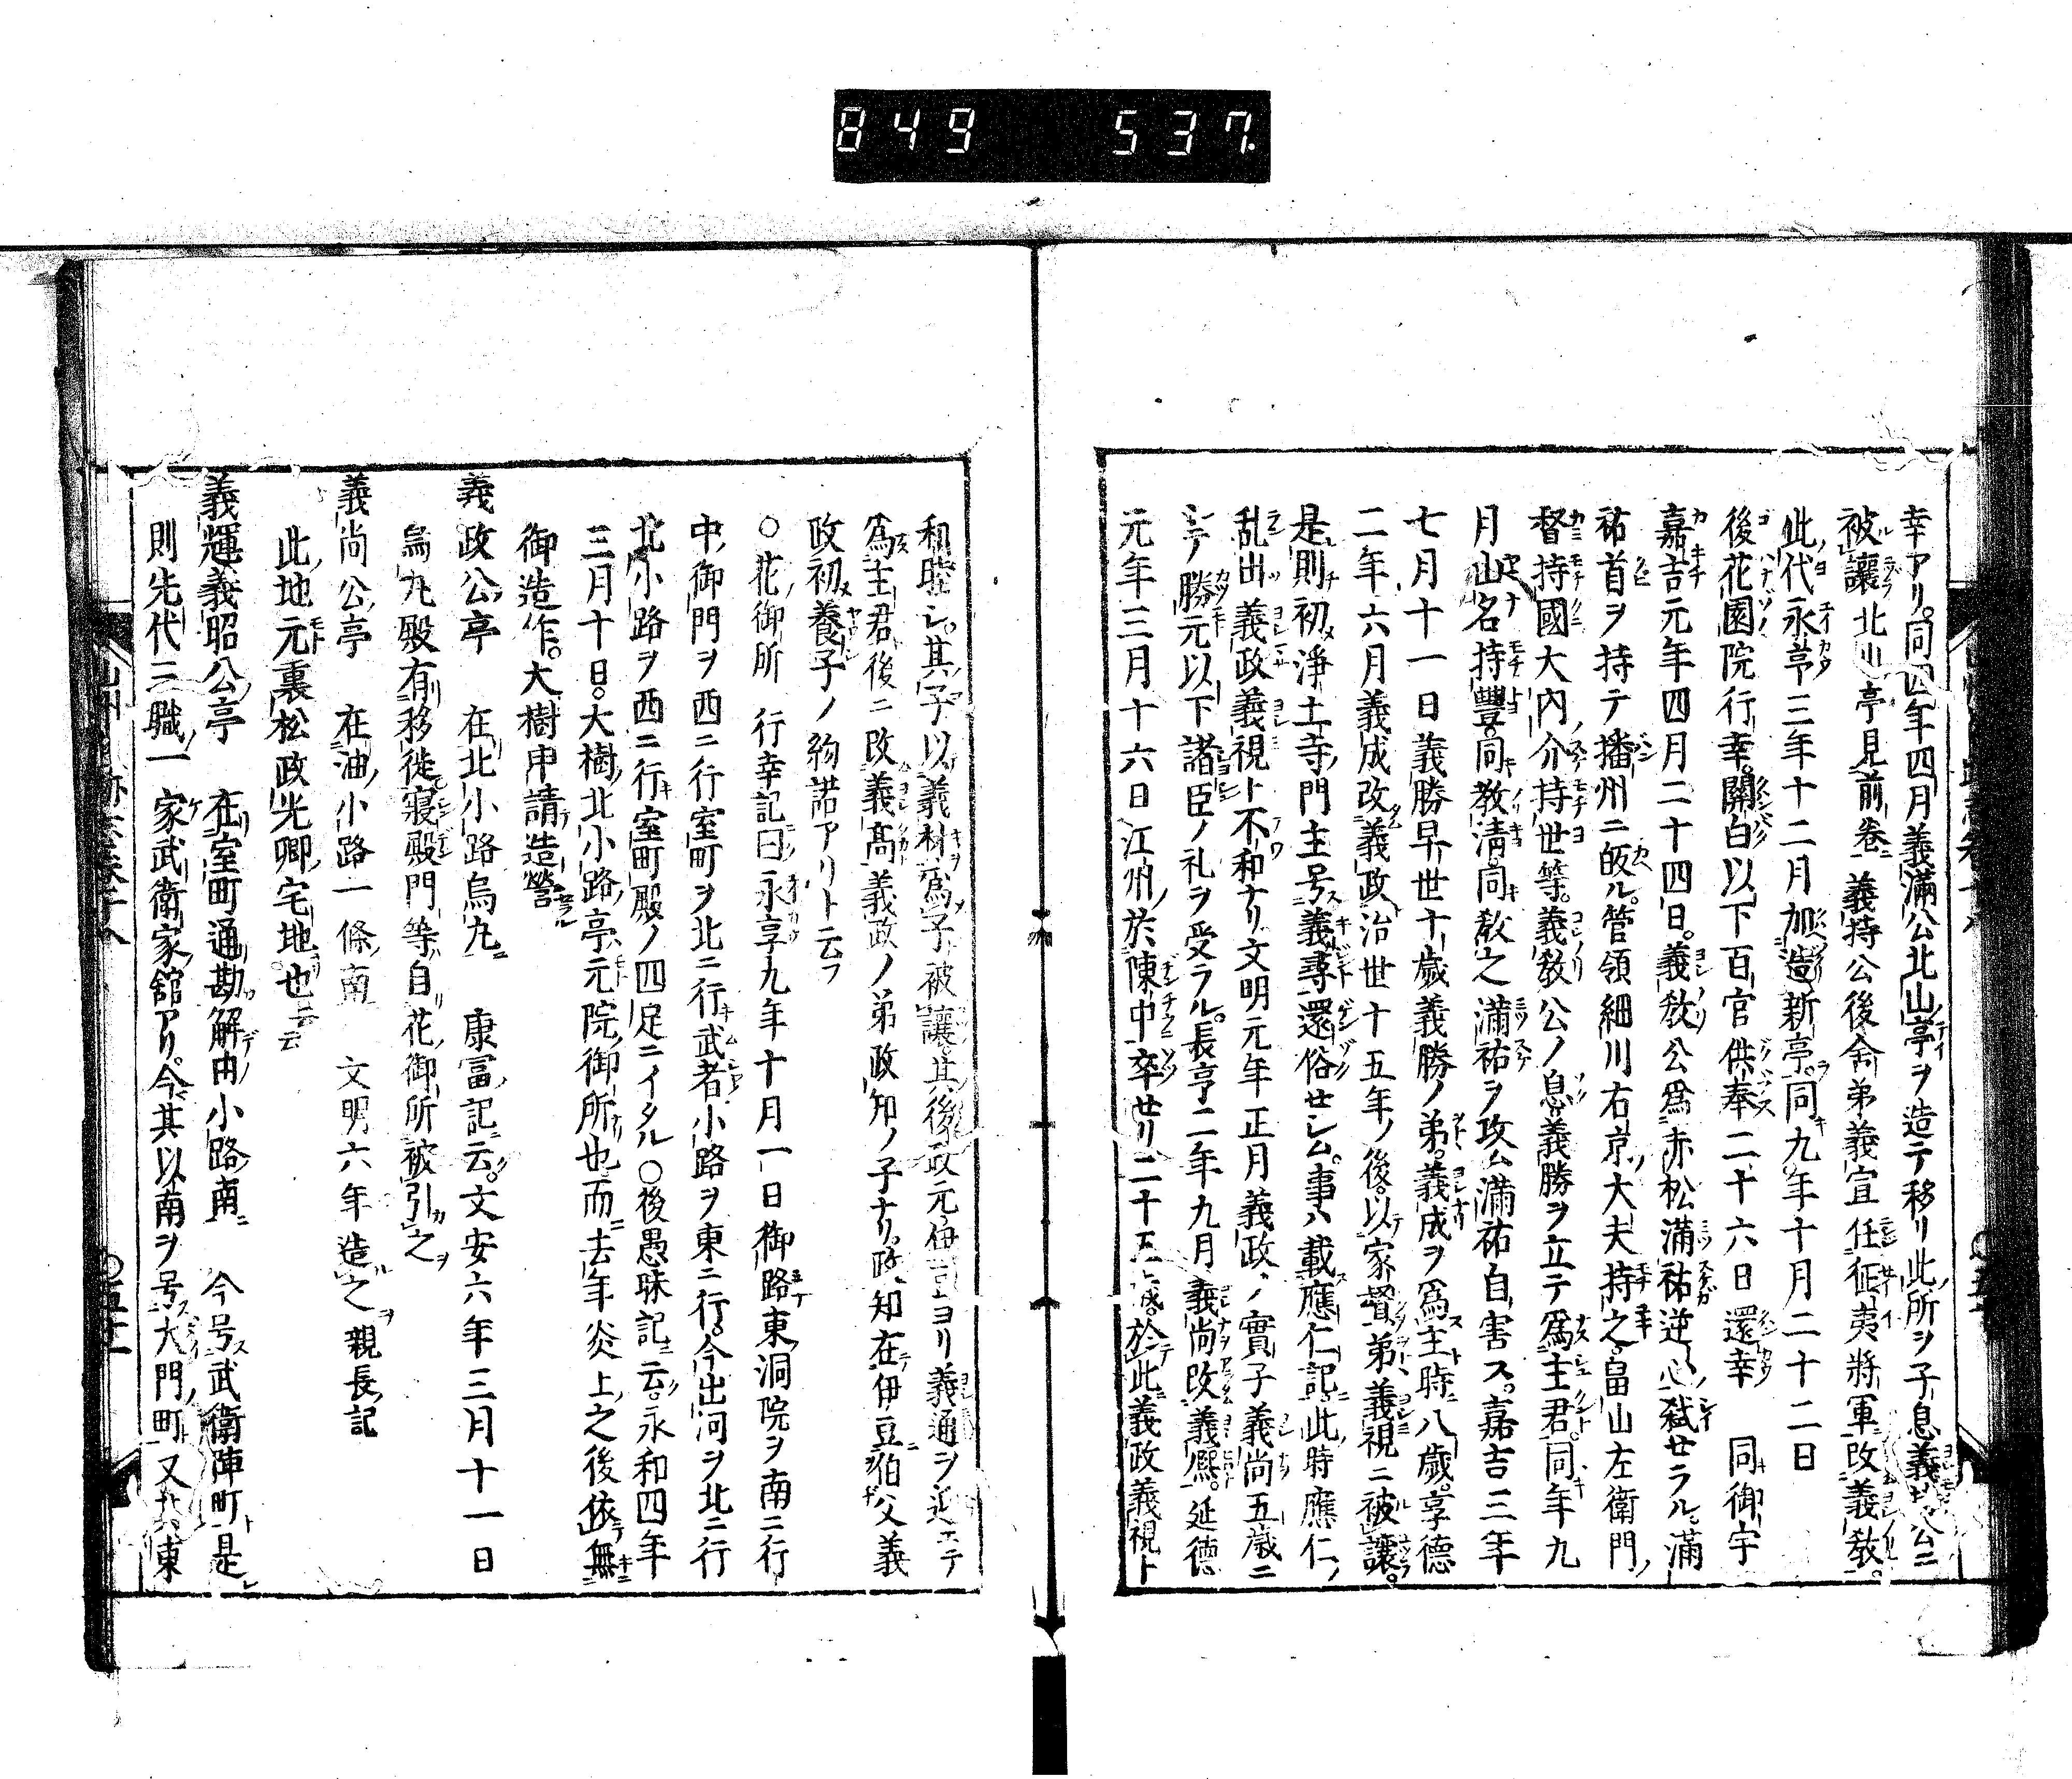 849 537.
幸アリ。同四年四月義滿公北山亭ヲ造テ移リ此所ヲ子息義公ニ
被讓北山亭見前卷義持公後令弟義宣任征夷將軍改義教。
此代永享三年十二月加造新亭。同九年十月二十二日
後花園院行幸。關白以下百官供奉二十六日還幸 同御宇
嘉吉元年四月二十四日。義教公爲赤松滿祐逆心弑セラル滿
祐首ヲ持テ播州ニ皈ル。管領細川右京大夫持之畠山左衛門
督持國大内介持世等。義教公ノ息義勝ヲ立テ爲主君。同年九
月山名持豐。同教清同教之滿祐ヲ攻ム滿祐自害ス。嘉吉三年
七月十一日義勝早世十歲義勝ノ弟。義成ヲ爲主時八歲。享德
二年六月義成改義政治世十五年ノ後。以家督弟義視ニ被讓。
是則初淨土寺門主号義尋還俗セシム。事ハ載應仁記。此時應仁
乱出義政義視ト不和ナリ文明元年正月義政ノ實子義尚五歲ニ
シテ勝元以下諸臣ノ礼ヲ受ラル。長享二年九月義尚改義凞。延德
元年三月十六日江州於陳中卒せリ二十五歲。於此義政義視ト
和睦シ。其子以義材爲子被讓。其後政元伊豆ヨリ義通ヲ迎エテ
爲主君後ニ改義高義政ノ弟政知ノ子ナリ。政知在伊豆伯父義
政初養子ノ約諾アリト云フ
○花御所 行幸記曰永享九年十月一日御路東洞院ヲ南ニ行
中御門ヲ西ニ行室町ヲ北ニ行武者小路ヲ東ニ行。今出河ヲ北ニ行
北小路ヲ西ニ行室町殿ノ四足ニイタル○後愚昧記云。永和四年
三月十日。大樹北小路亭元院御所也而去年炎上之後依無
御造作。大樹申請造營
義政公亭 在北小路烏丸 康冨記云。文安六年三月十一日
烏丸殿有移徙寢殿門等自花御所被引之
義尚公亭 在油小路一條南 文明六年造之親長記
此地元裏松政光卿宅地也云云
義輝義昭公亭 在室町通勘解由小路南 今号武衛陣町是
則先代三職一家武衛家舘アリ。今其以南ヲ号大門町又其東